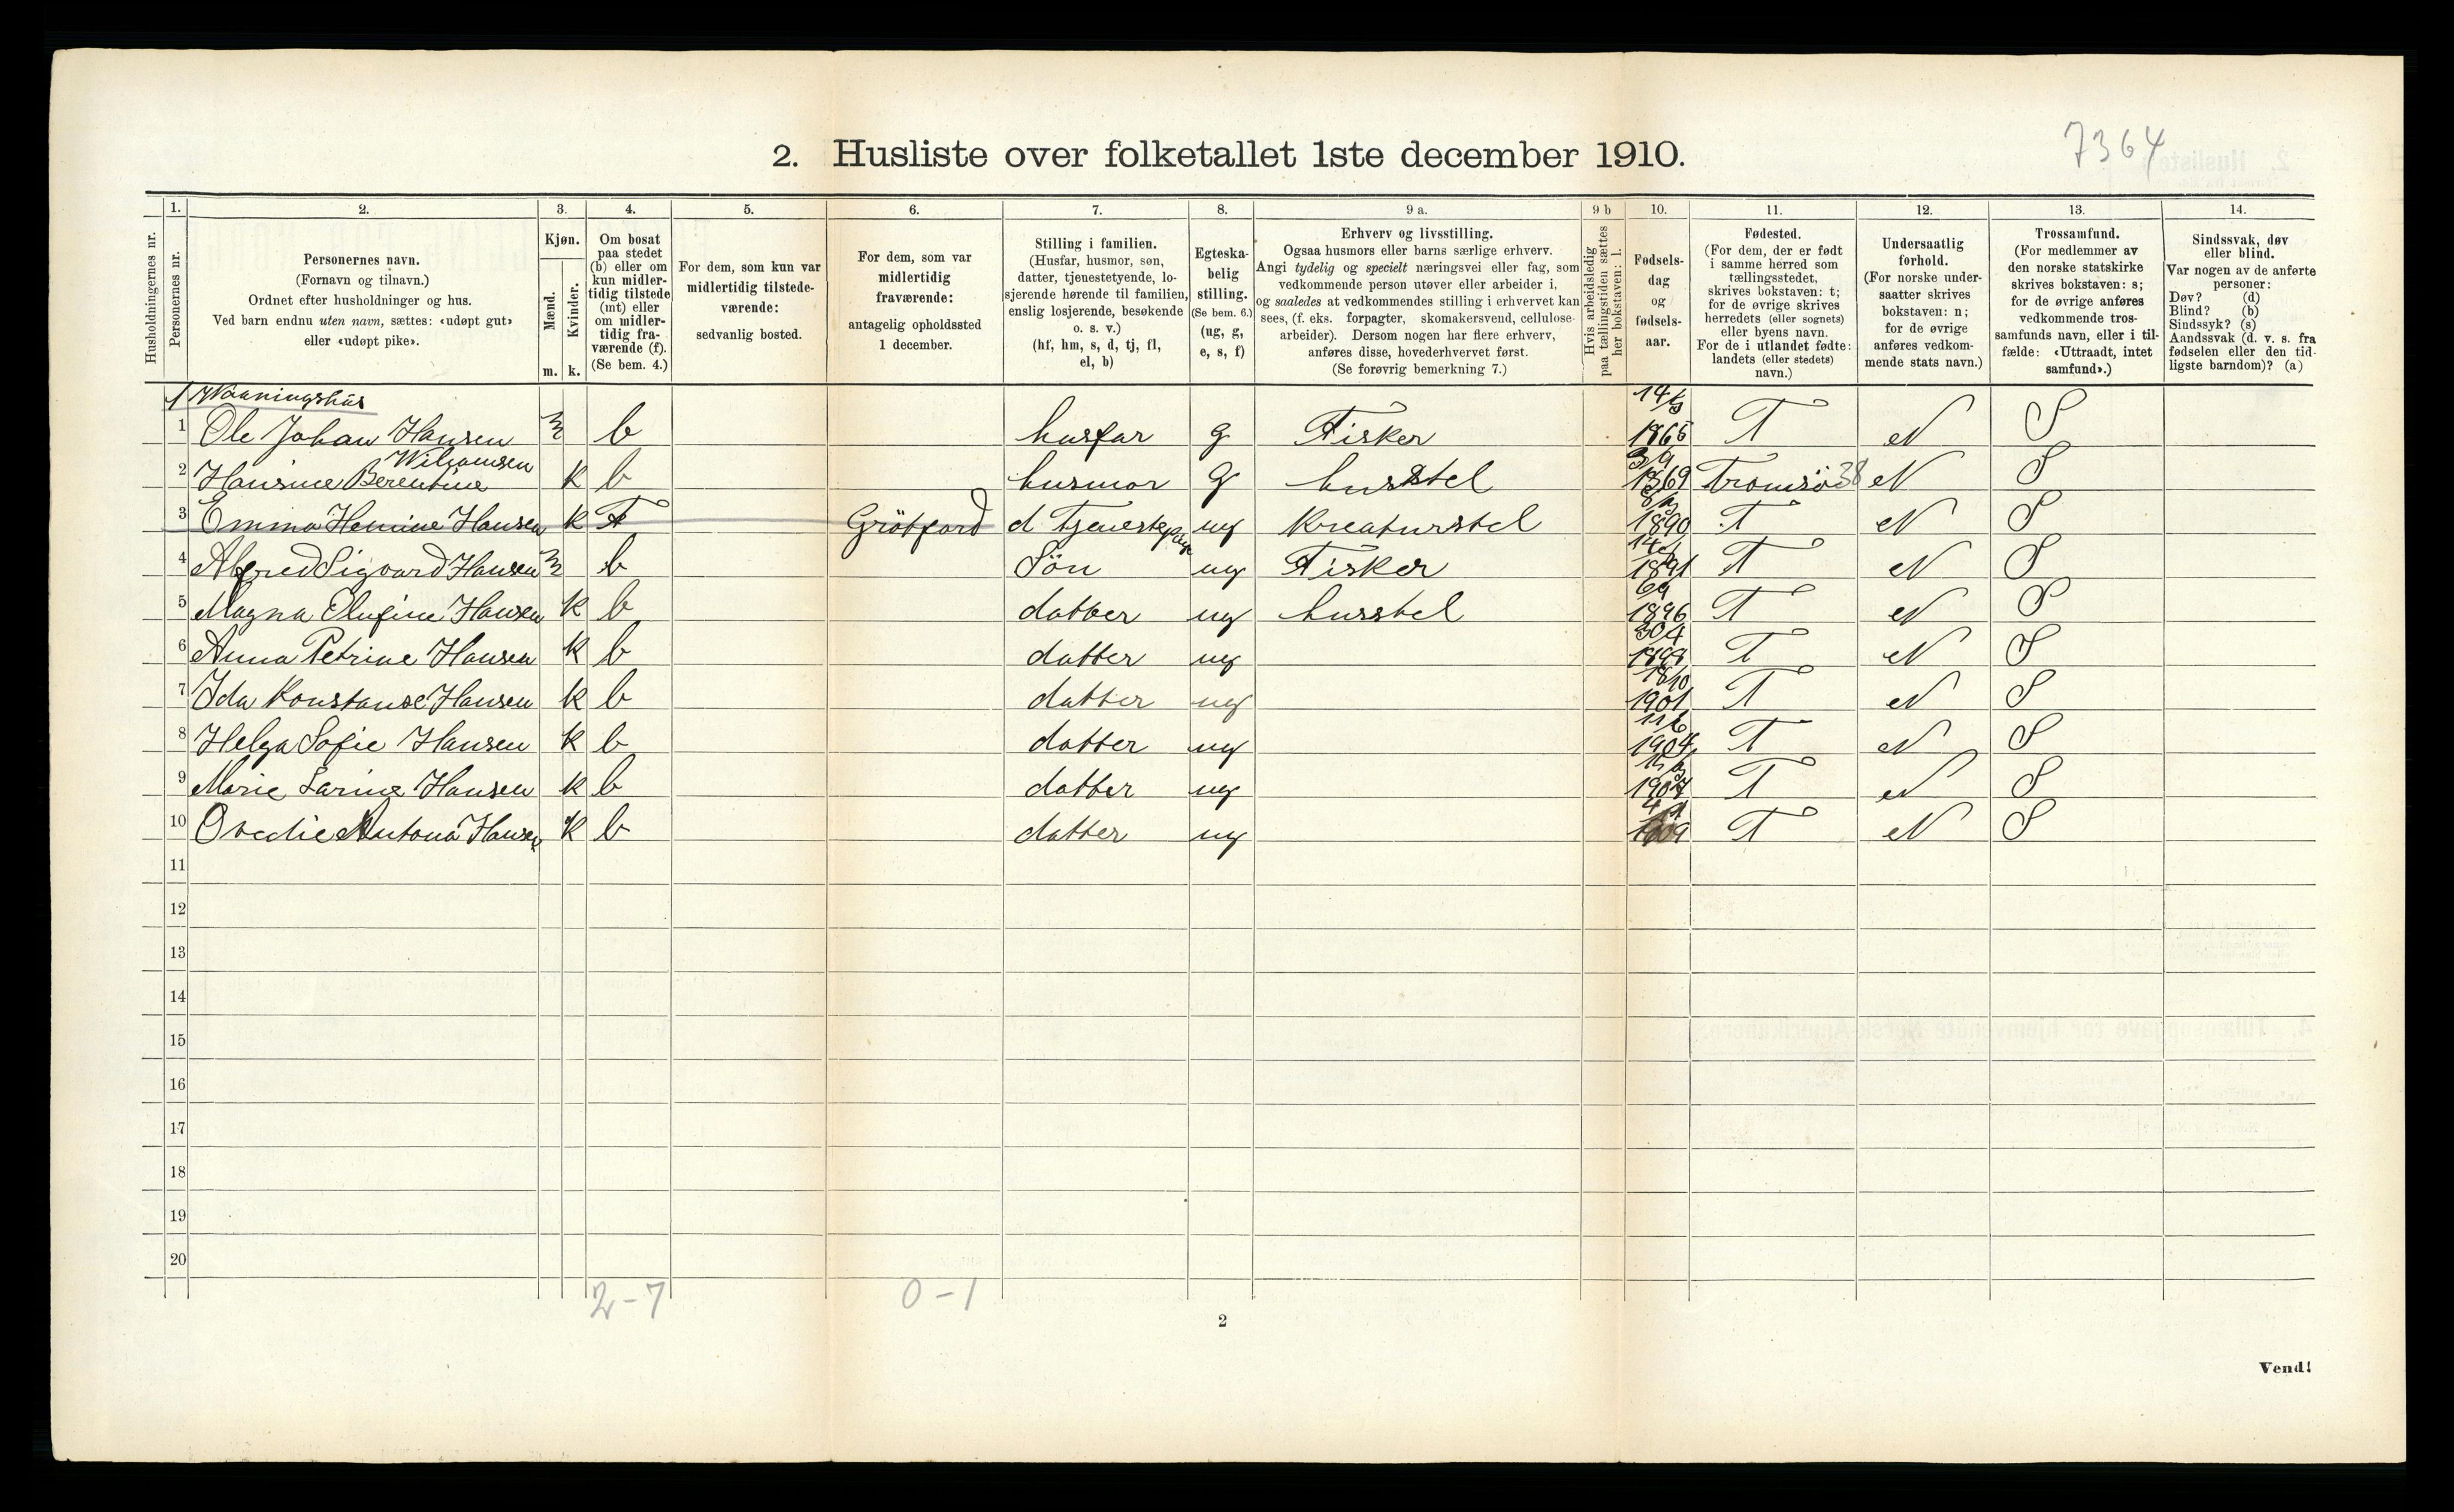 7364
2. Husliste over folketallet 1ste december 1910.
1. 2. 3. 4. 5. 6. 7. 8. 9 a. 9 b 10. 11. 12. 13. 14.
Husholdningernes nr.
Personernes nr.
Personernes navn.
(Fornavn og tilnavn.)
Ordnet efter husholdninger og hus.
Ved barn endnu uten navn, sættes: «udøpt gut»
eller «udøpt pike».
Kjøn.
Mænd.
Kvinder.
m. k.
Om bosat
paa stedet
(b) eller om
kun midler-
tidig tilstede
(mt) eller
om midler-
tidig fra-
værende (f).
(Se bem. 4.)
For dem, som kun var
midlertidig tilstede-
værende:
sedvanlig bosted.
For dem, som var
midlertidig
fraværende:
antagelig opholdssted
1 december.
Stilling i familien.
(Husfar, husmor, søn,
datter, tjenestetyende, lo-
sjerende hørende til familien,
enslig losjerende, besøkende
o. s. v.)
(hf, hm, s, d, tj, fl,
el, b)
Egteska-
belig
stilling.
(Se bem. 6.)
(ug, g,
e, s, f)
Erhverv og livsstilling.
Ogsaa husmors eller barns særlige erhverv.
Angi tydelig og specielt næringsvei eller fag, som
vedkommende person utøver eller arbeider i,
og saaledes at vedkommendes stilling i erhvervet kan
sees, (f. eks. forpagter, skomakersvend, cellulose-
arbeider). Dersom nogen har flere erhverv,
anføres disse, hovederhvervet først.
(Se forøvrig bemerkning 7.)
Hvis arbeidsledig
paa tællingstiden sættes
her bokstaven: l.
Fødsels-
dag
og
fødsels-
aar.
Fødested.
(For dem, der er født
i samme herred som
tællingsstedet,
skrives bokstaven: t;
for de øvrige skrives
herredets (eller sognets)
eller byens navn.
For de i utlandet fødte:
landets (eller stedets)
navn.)
Undersaatlig
forhold.
(For norske under-
saatter skrives
bokstaven: n;
for de øvrige
anføres vedkom-
mende stats navn.)
Trossamfund.
(For medlemmer av
den norske statskirke
skrives bokstaven: s;
for de øvrige anføres
vedkommende tros-
samfunds navn, eller i til-
fælde: «Uttraadt, intet
samfund».)
Sindssvak, døv
eller blind.
Var nogen av de anførte
personer:
Døv? (d)
Blind? (b)
Sindssyk? (s)
Aandssvak (d. v. s. fra
fødselen eller den tid-
ligste barndom)? (a)
1 Waaningshus
1 Ole Johan Hansen m b husfar g Fisker 1865 T N S
Wilhamsen
2 Hansine Berentine k b husmor g husstel 3/9 1869 Tromsö 38 N S
3 Emma Hemine Hansen k F Grötfjord d Tjenestepige ug Kreaturstel 1890 T N S
4 Alfred Sigvard Hansen m b Sön ug Fisker 1891 T N S
5 Magna Olufine Hansen k b datter ug husstel 1896 T N S
6 Anna Petrine Hansen k b datter ug 30/4 1898 T N S
7 Ida Konstanse Hansen k b datter ug 18/10 1901 T N S
8 Helga Sofie Hansen k b datter ug 11/6 1904 T N S
9 Marie Larine Hansen k b datter ug 1907 T N S
10 Ovedie Antona Hansen k b datter ug 1909 T N S
11
12
13
14
15
16
17
18
19
20
2-7 0-1
2
Vend!